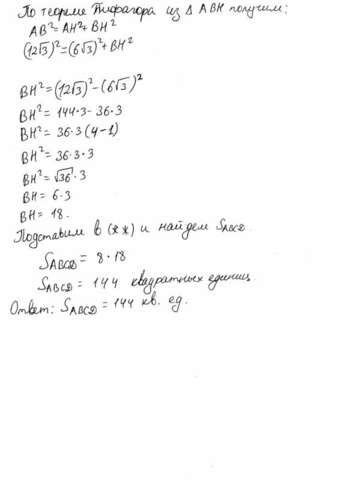 По теореме Пифагора из Δ ABH получим:
AB²=AH²+BH²
(12√3)²=(6√3)²+BH²
BH²=(12√3)²-(6√3)²
BH²=144·3-36·3
BH²=36·3(4-1)
BH²=36·3·3
BH²=√36·3
BH=6·3
BH=18.
Подставим в (**) и найдем S_ABCD.
S_ABCD=8·18
S_ABCD=144 квадратных единиц.
Ответ: S_ABCD=144 кв. ед.